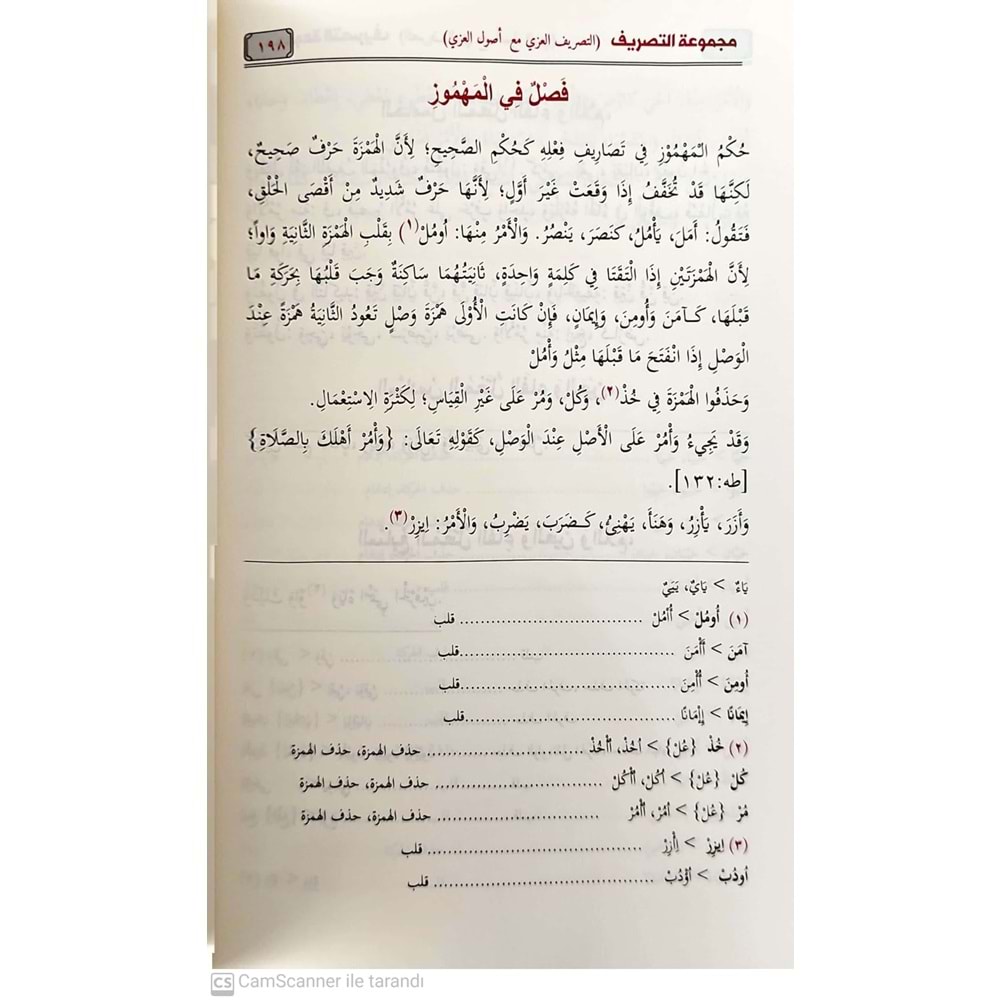 مجموعة التصريف (التصريف العزي مع أصول العزي) ١٩٨
فَصْلٌ فِي الْمَهْمُوزِ
حُكْمُ الْمَهْمُوْزِ فِي تَصَارِيفِ فِعْلِهِ كَحُكْمِ الصَّحِيحِ؛ لِأَنَّ الْهَمْزَةَ حَرْفٌ صَحِيحٌ،
لَكِنَّهَا قَدْ تُخَفَّفُ إِذَا وَقَعَتْ غَيْرَ أَوَّلٍ؛ لِأَنَّهَا حَرْفٌ شَدِيدٌ مِنْ أَقْصَى الْحَلْقِ،
فَتَقُولُ: أَمَلَ، يَأْمُلُ، كَنَصَرَ، يَنْصُرُ. وَالْأَمْرُ مِنْهَا: اُومُلْ(١) بِقَلْبِ الْهَمْزَةِ الثَّانِيَةِ وَاواً؛
لِأَنَّ الْهَمْزَتَيْنِ إِذَا الْتَقَتَا فِي كَلِمَةٍ وَاحِدَةٍ، ثَانِيَتُهُمَا سَاكِنَةٌ وَجَبَ قَلْبُهَا بِحَرَكَةِ مَا
قَبْلَهَا، كَـآمَنَ وَأُومِنَ، وَإِيمَانٍ، فَإِنْ كَانَتِ الْأُوْلَى هَمْزَةَ وَصْلٍ تَعُودُ الثَّانِيَةُ هَمْزَةً عِنْدَ
الْوَصْلِ إِذَا انْفَتَحَ مَا قَبْلَهَا مِثْلُ وَأْمُلْ
وَحَذَفُوا الْهَمْزَةَ فِي خُذْ(٢)، وَكُلْ، وَمُرْ عَلَى غَيْرِ الْقِيَاسِ؛ لِكَثْرَةِ الِاسْتِعْمَالِ.
وَقَدْ يَجِيءُ وَأْمُرْ عَلَى الْأَصْلِ عِنْدَ الْوَصْلِ، كَقَوْلِهِ تَعَالَى: {وَأْمُرْ أَهْلَكَ بِالصَّلَاةِ}
[طه:١٣٢].
وَأَزَرَ، يَأْزِرُ، وَهَنَأَ، يَهْنِئُ، كَـضَرَبَ، يَضْرِبُ، وَالْأَمْرُ: اِيزِرْ(٣).
يَاءٌ > يَايٌ، يَيَيٌ
(١) اُومُلْ > اُأْمُلْ ................................ قلب
آمَنَ > أَأْمَنَ ................................ قلب
أُومِنَ > أُأْمِنَ ................................ قلب
إِيمَانًا > إِإْمَانًا ................................ قلب
(٢) خُذْ {عُلْ} > اُخُذْ، اُأْخُذْ ................................ حذف الهمزة، حذف الهمزة
كُلْ {عُلْ} > اُكُلْ، اُأْكُلْ ................................ حذف الهمزة، حذف الهمزة
مُرْ {عُلْ} > اُمُرْ، اُأْمُرْ ................................ حذف الهمزة، حذف الهمزة
(٣) اِيزِرْ > اِأْزِرْ ................................ قلب
اُودُبْ > اُؤْدُبْ ................................ قلب
CS CamScanner ile tarandı